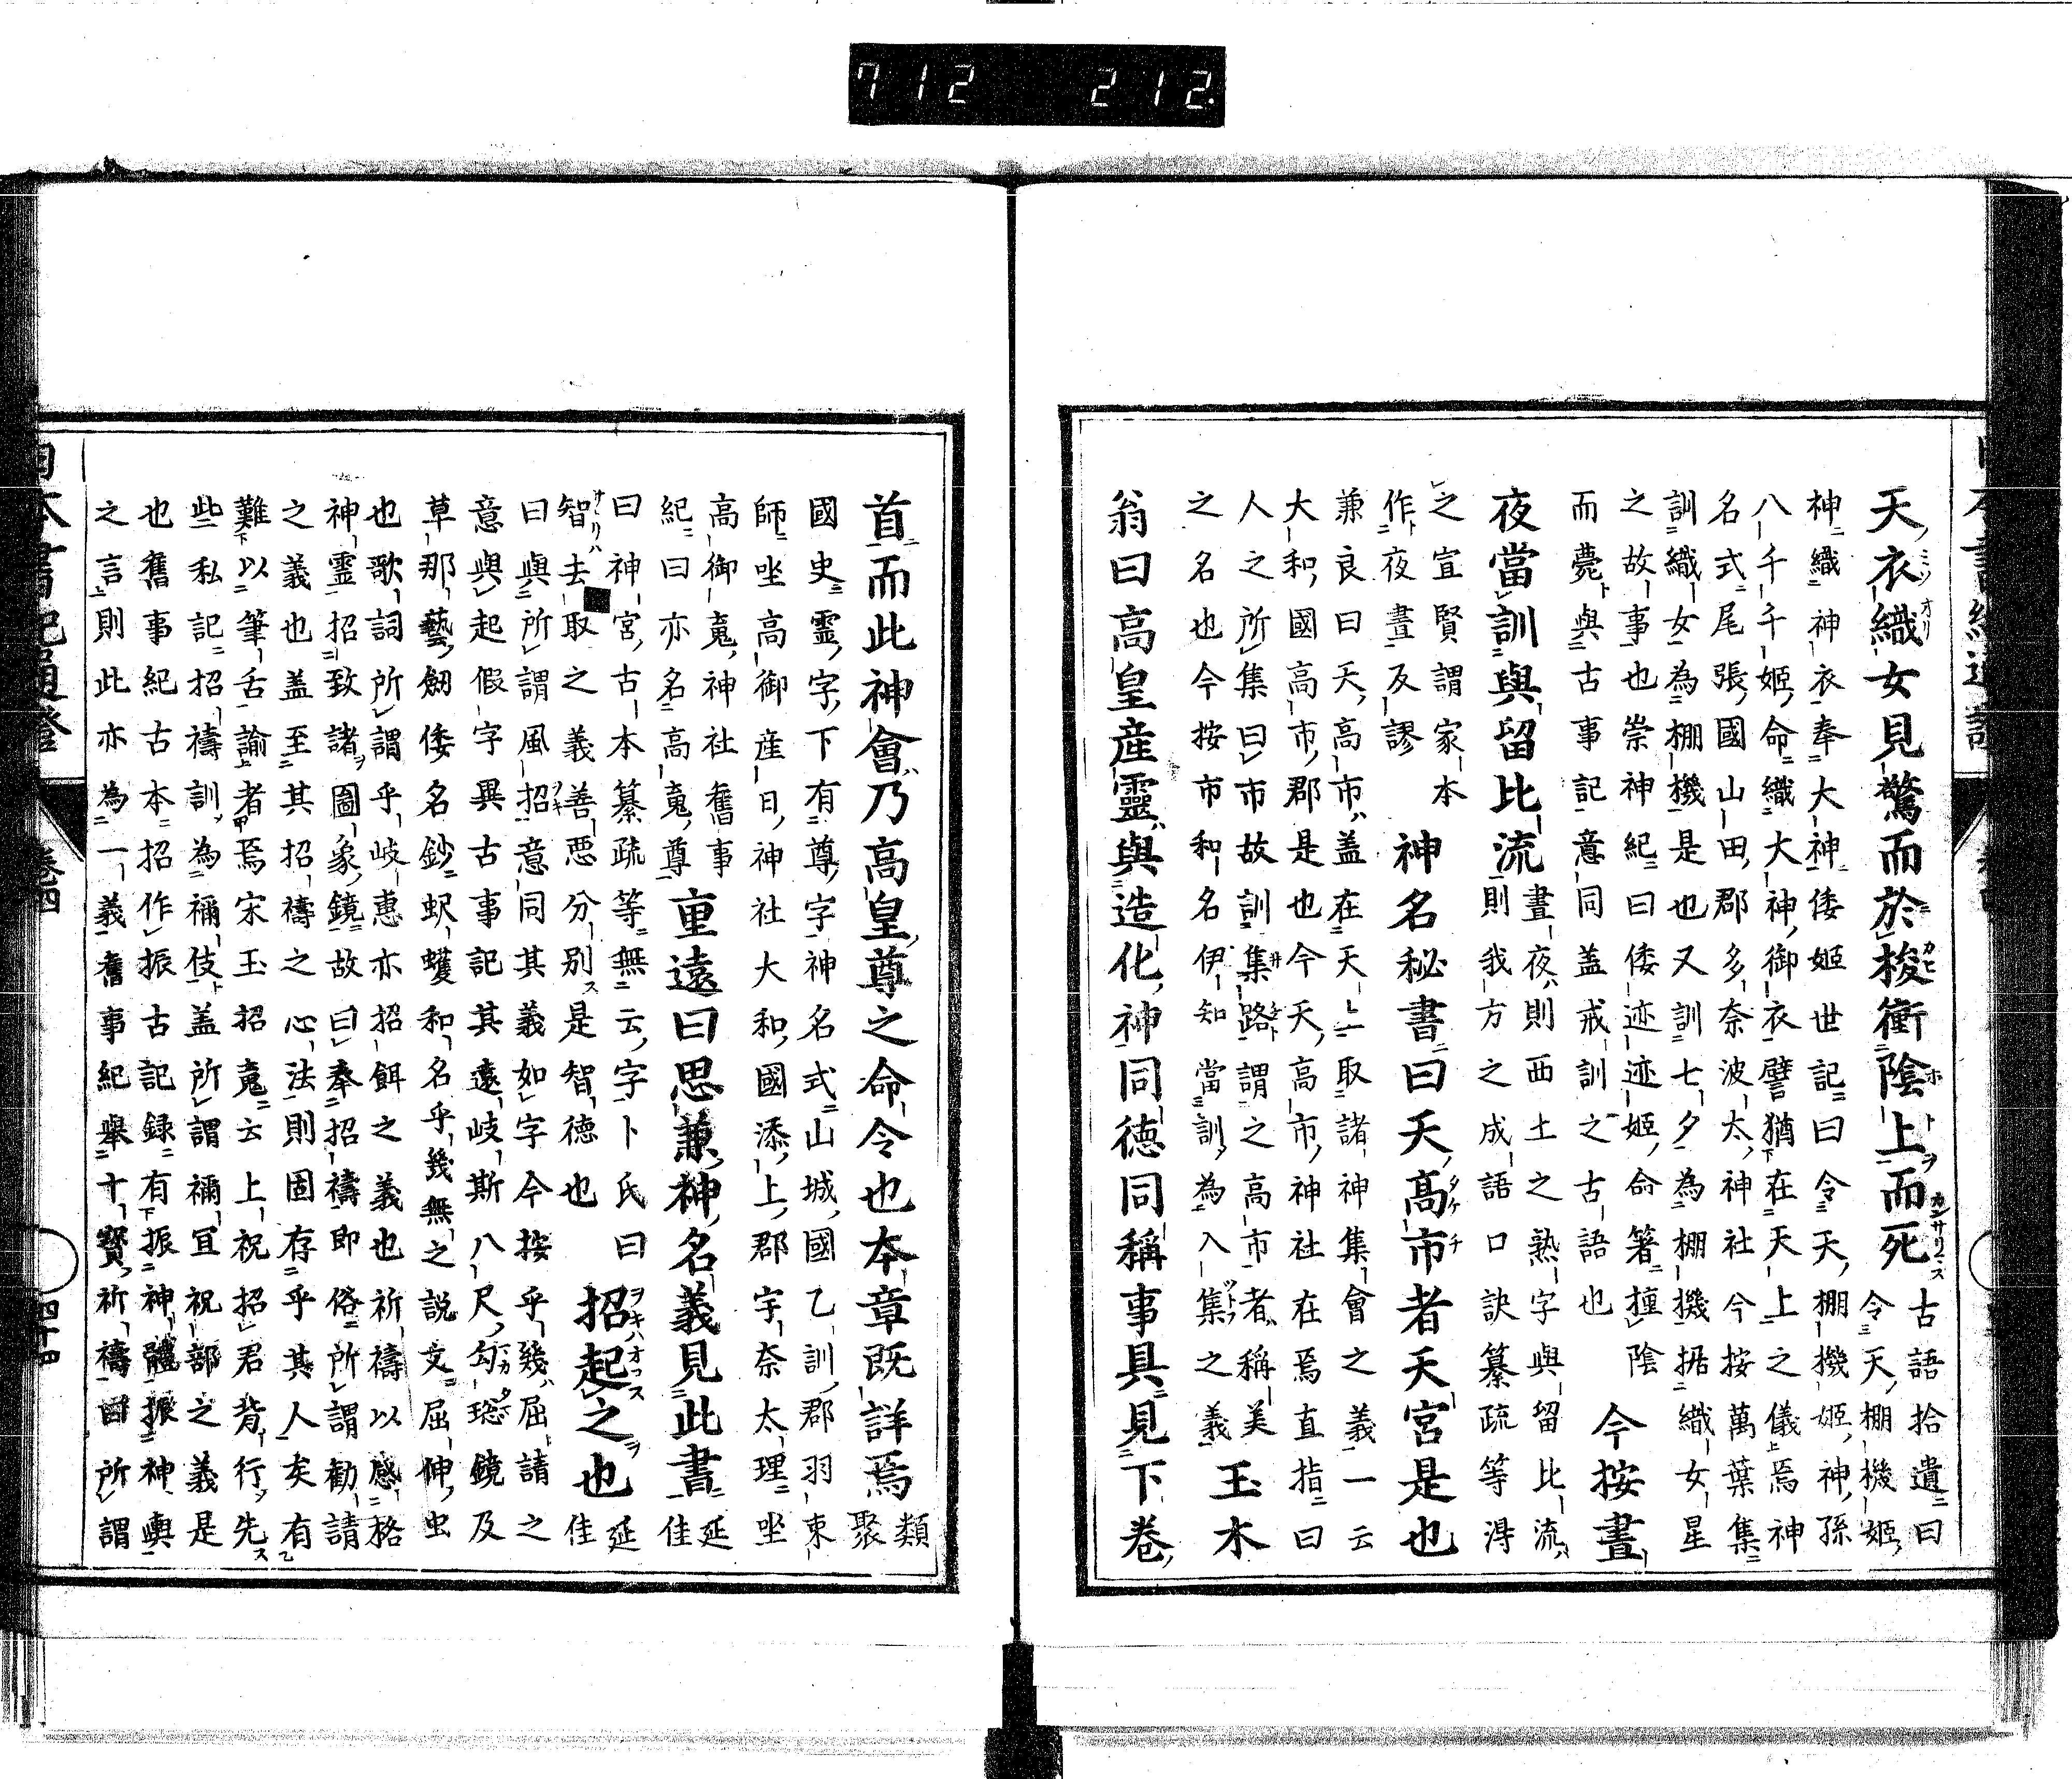 712 212.
天衣織女見驚而於梭衝陰上而死 古語拾遺曰
令天棚機姬
神織神衣奉大神倭姬世記曰令天棚機姬神孫
八千千姬命織大神御衣譬猶在天上之儀焉神
名式尾張國山田郡多奈波太神社今按萬葉集
訓織女為棚機是也又訓七夕為棚機据織女星
之故事也崇神紀曰倭迹迹姬命箸撞陰
而薨與古事記意同盖戒訓之古語也 今按晝
夜當訓與留比流 晝夜則西土之熟字與留比流
則我方之成語口訣纂疏等淂
之宜賢謂家本
作夜晝反謬 神名秘書曰天高市者天宮是也
兼良曰天高市盖在天上取諸神集會之義一云
大和國高市郡是也今天高市神社在焉直指曰
人之所集曰市故訓集路謂之高市者稱美
之名也今按市和名伊知當訓為入集之義 玉木
翁曰高皇産靈與造化神同德同稱事具見下卷
首而此神會乃高皇尊之命令也本章既詳焉 類
聚
國史靈字下有尊字神名式山城國乙訓郡羽束
師坐高御産日神社大和國添上郡宇奈太理坐
高御䰟神社舊事
紀曰亦名高䰟尊 重遠曰思兼神名義見此書 延
佳
曰神宮古本纂疏等無云字卜氏曰
智去取之義善悪分別是智德也 招起之也 延
佳
曰與所謂風招意同其義如字今按乎幾屈請之
意與起假字異古事記其遠岐斯八尺勾璁鏡及
草那藝劔倭名鈔蚇蠖和名乎幾無之説文屈伸虫
也歌詞所謂乎岐惠亦招餌之義也祈禱以感格
神靈招致諸圖象鏡故曰奉招禱即俗所謂勸請
之義也盖至其招禱之心法則固存乎其人矣有
難以筆舌諭者焉宋玉招䰟云上祝招君背行先
些私記招禱訓為禰伎盖所謂禰宜祝部之義是
也舊事紀古本招作振古記録有振神體振神輿
之言則此亦為一義舊事紀舉十寶祈禱曰所謂
日本書紀通證 卷四 四十四